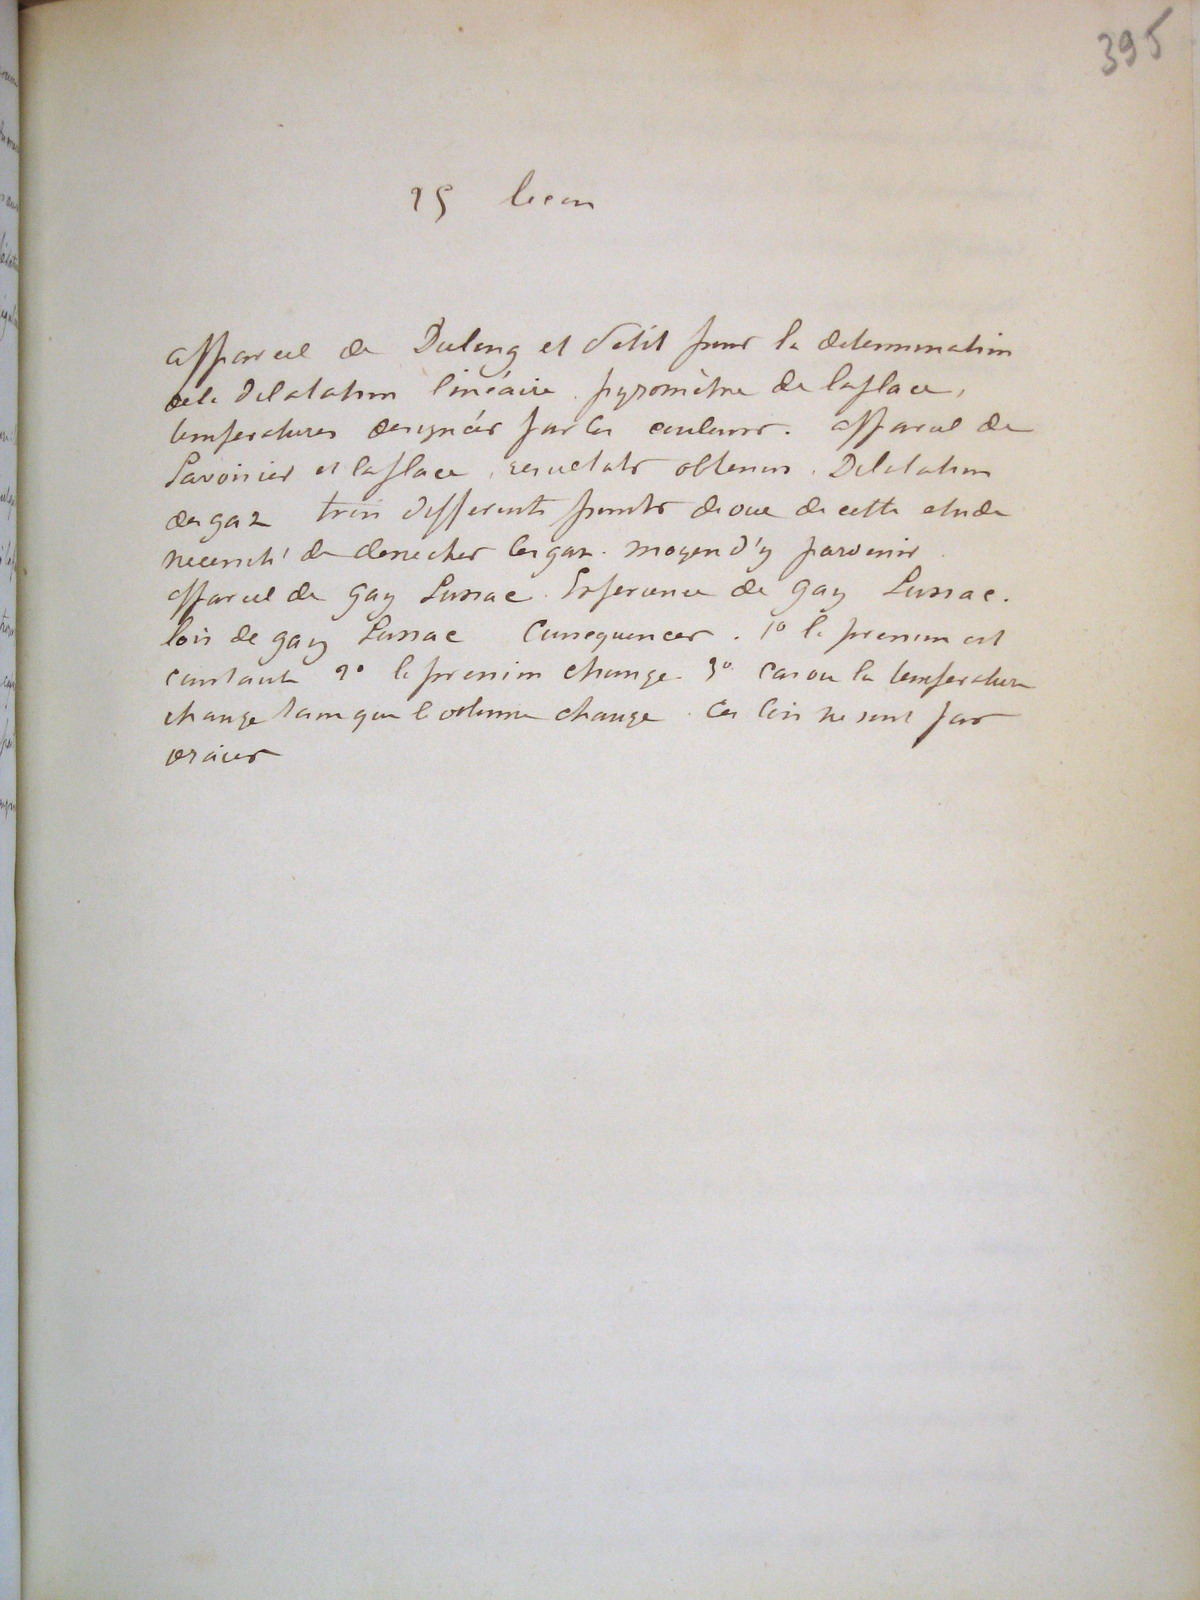 395
25 lecon
appareil de Dulong et Petit pour la determination
de la Dilatation linéaire. pyromètre de laplace,
temperatures designées par les couleurs. appareil de
Lavoisier et laplace. resultats obtenus. Dilatation
des gaz trois differents points de vue de cette etude
necessité de dessecher les gaz. moyen d'y parvenir.
appareil de gay Lussac. Experience de gay Lussac.
lois de gay Lussac Consequences. 1º la pression est
constante 2º la pression change. 3º cas ou la temperature
change sans que le volume change. Ces lois ne sont pas
vraies